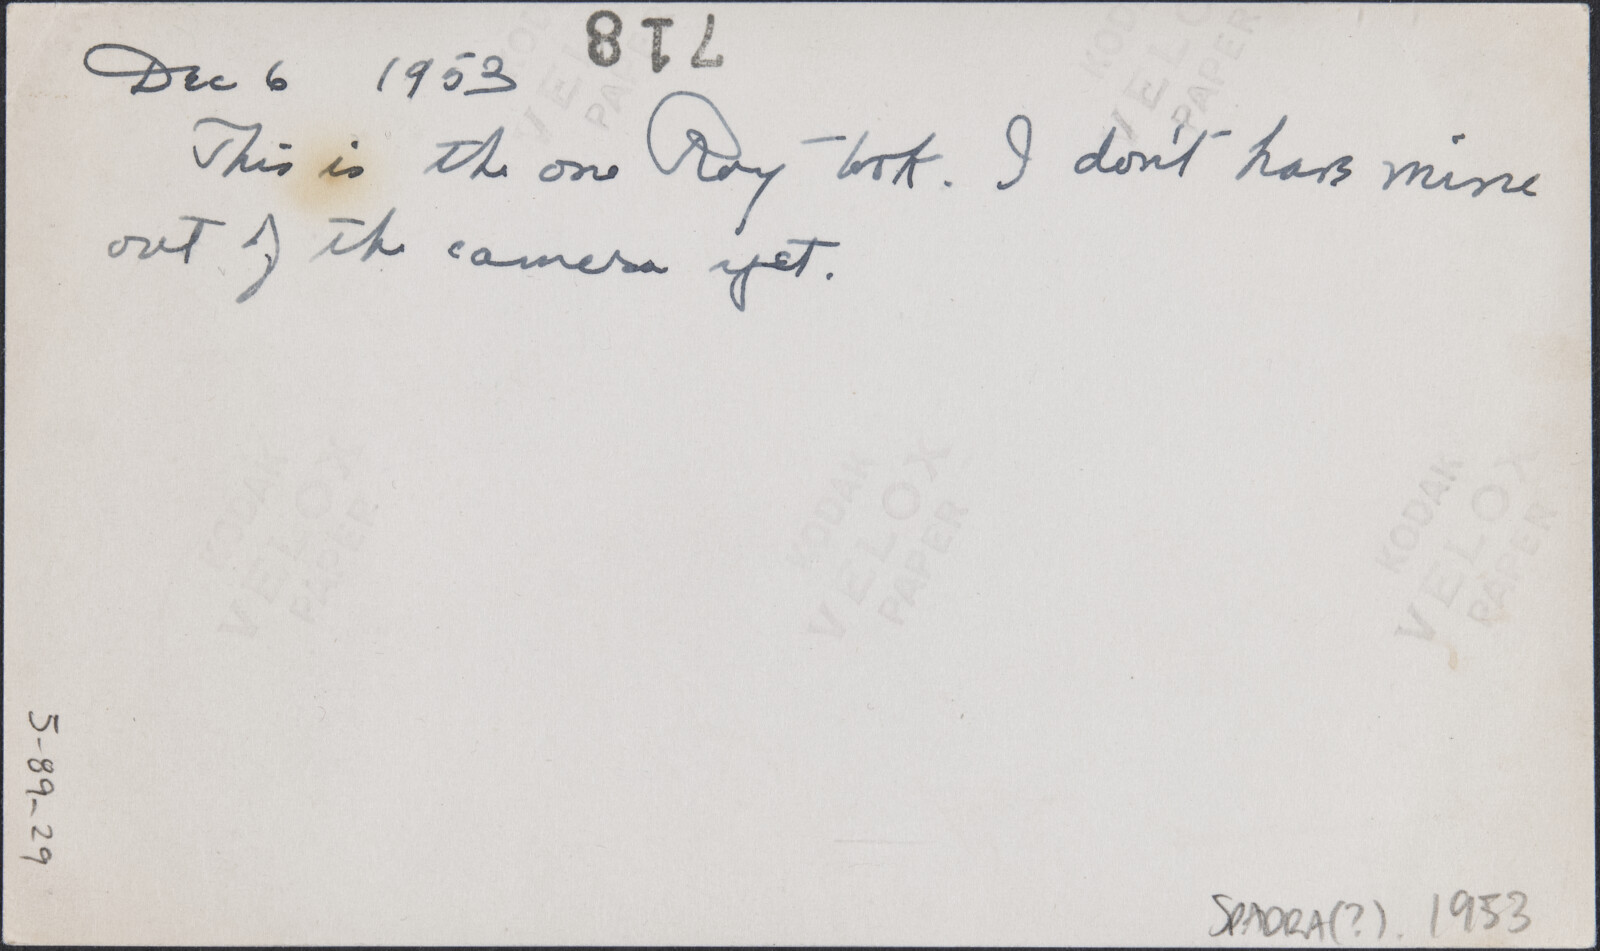 718
Dec 6 1953
This is the one Roy took. I don't have mine
out of the camera yet.
KODAK
VELOX
PAPER
KODAK
VELOX
PAPER
KODAK
VELOX
PAPER
KODAK
VELOX
PAPER
KODAK
VELOX
PAPER
5-89-29
SPADRA(?). 1953